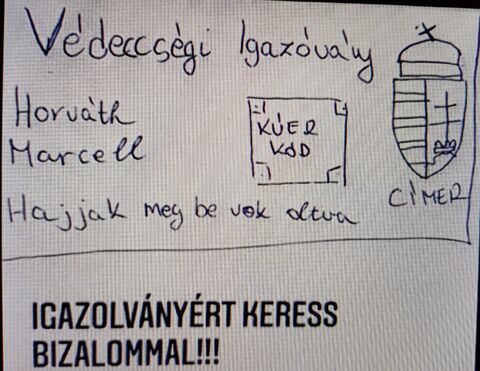 Védeccségi Igazóvány
Horváth
Marcell
KÚER
KÓD
CÍMER
Hajjak meg be vok oltva
IGAZOLVÁNYÉRT KERESS
BIZALOMMAL!!!